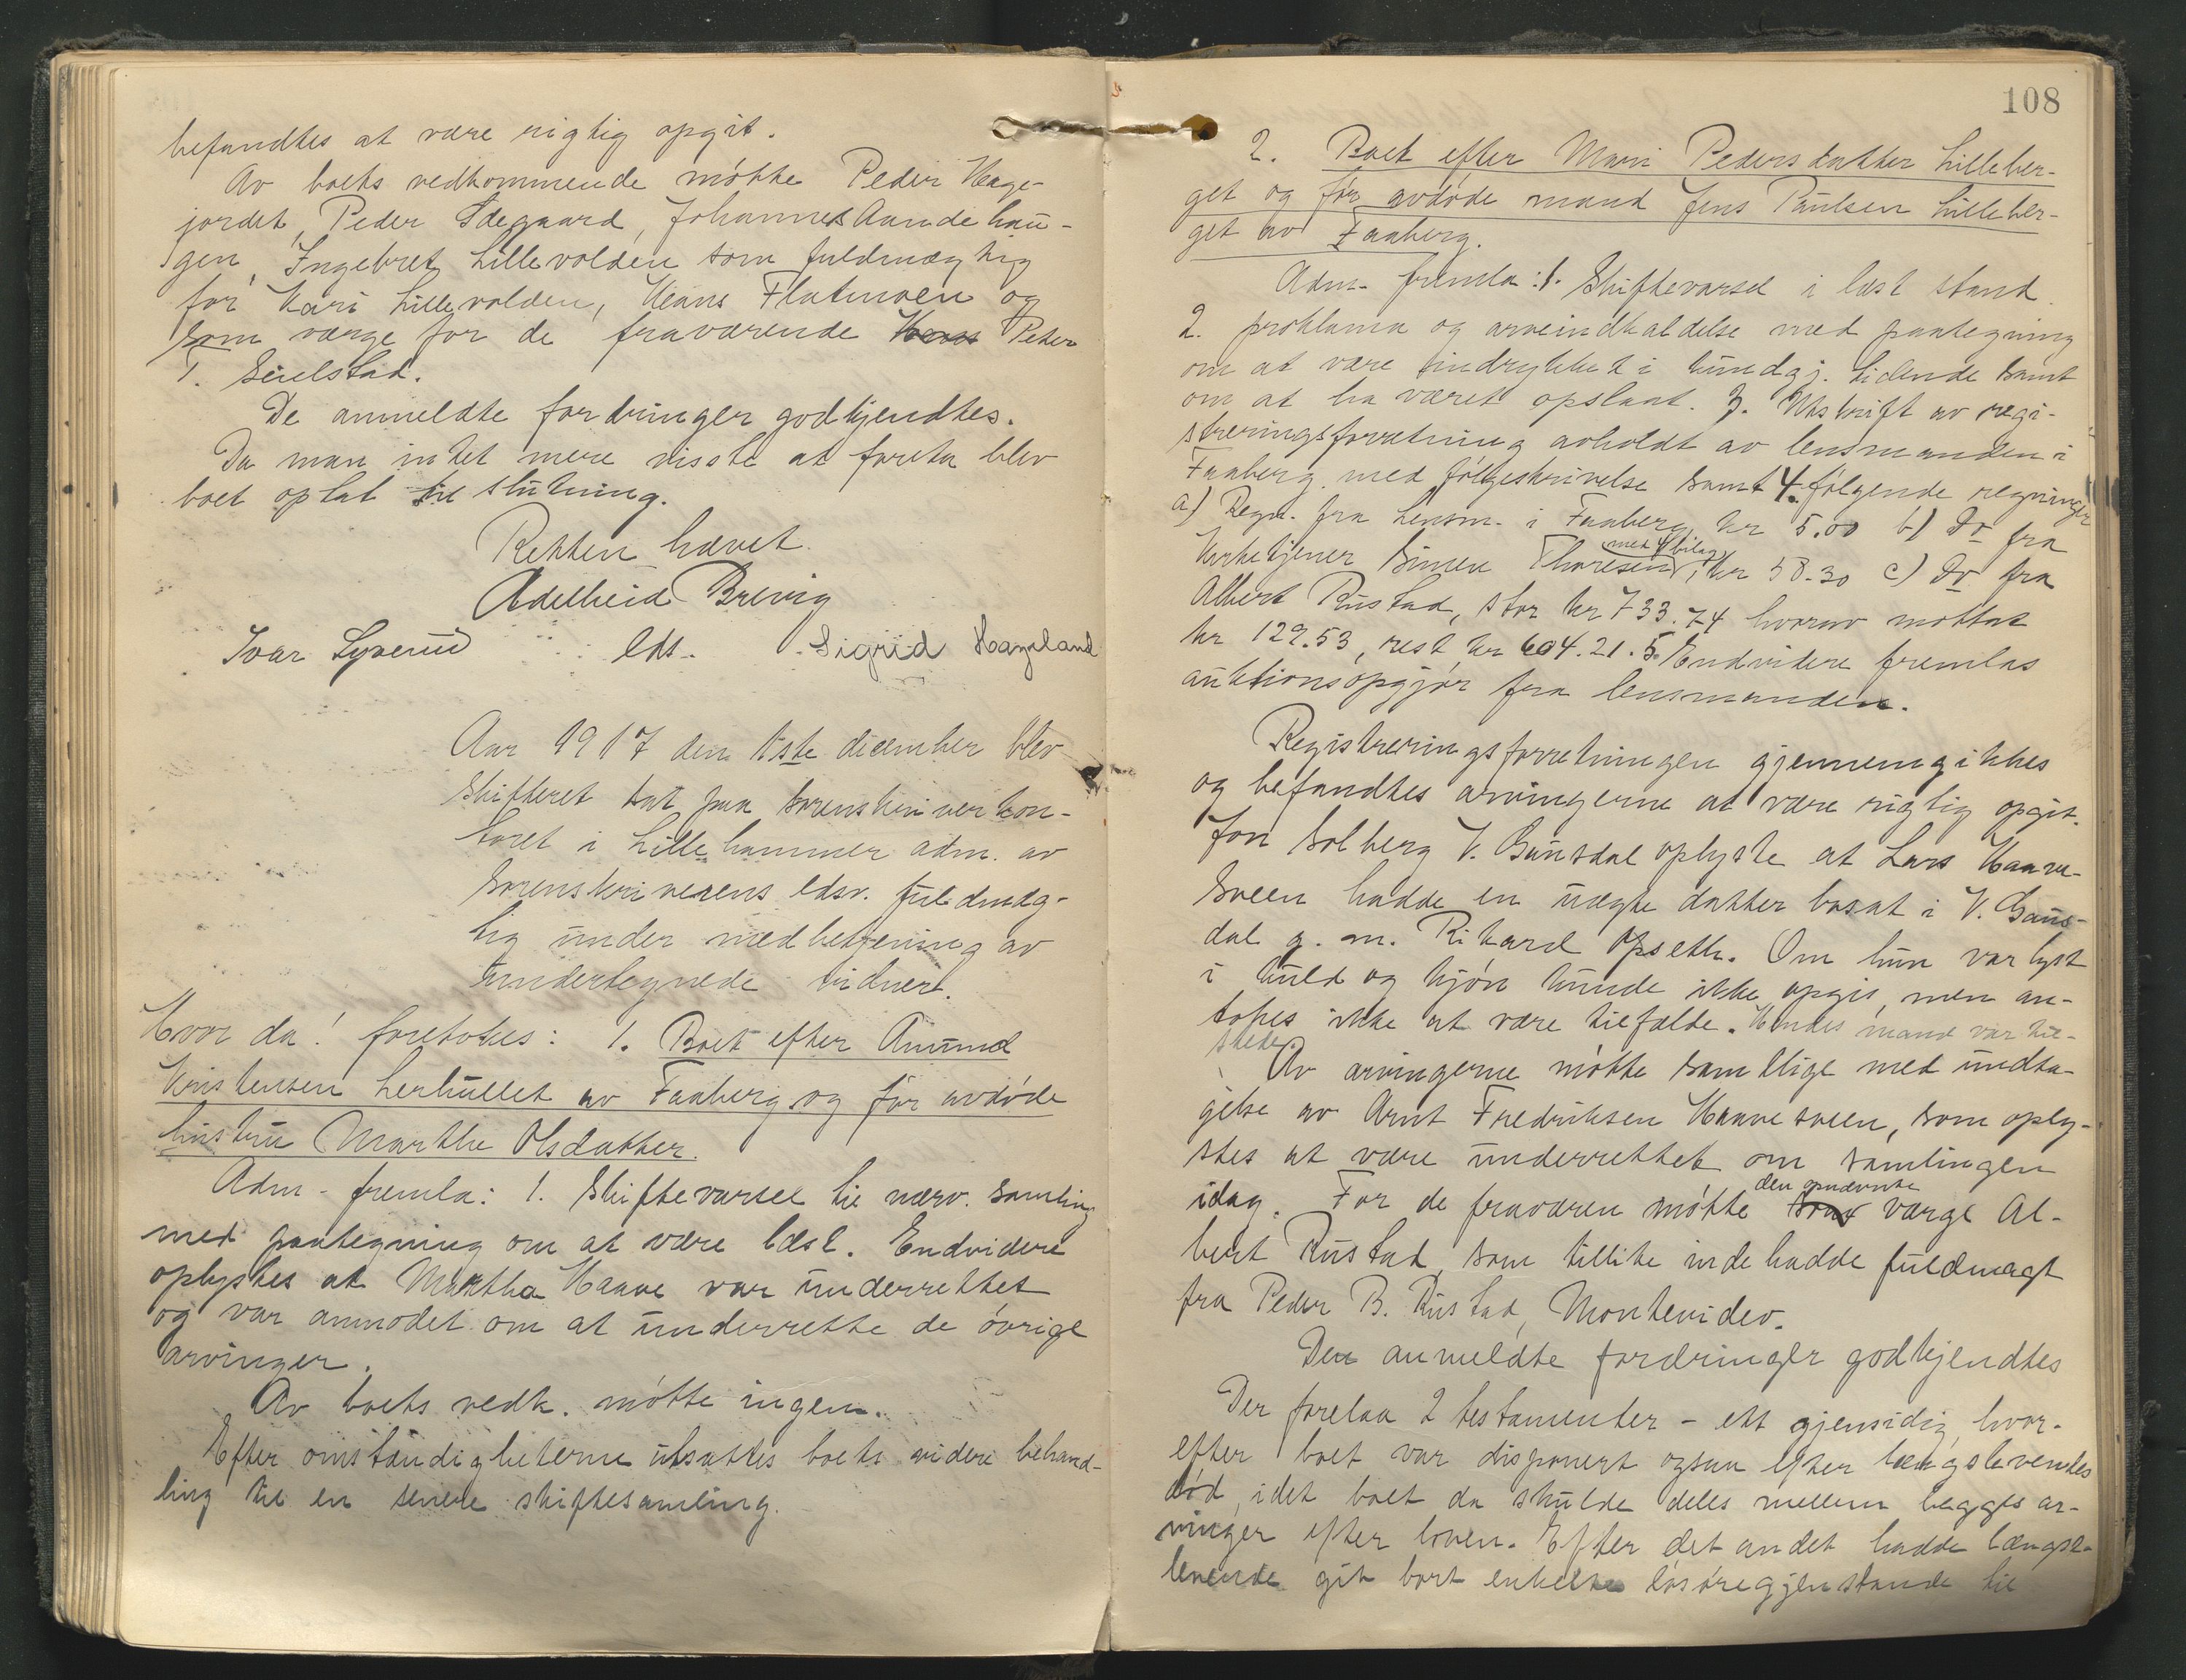 befandtes at være rigtig opgit.
Av boets vedkommende møtte Peder Hage-
jordet, Peder Ødegaard, Johannes Aandehau-
gen, Ingebret Lillevolden som fuldmægtig
for Kari Lillevolden, Hans Flatmoen og
som værge for de fraværende Hans Peter
T. Seielstad.
De anmeldte fordringer godkjendtes.
Da man intet mere visste at foreta blev
boet optat til slutning.
Retten hævet.
Adelheid Brevig
Ivar Lyverud eds. Sigrid Hageland
Aar 1917 den 1ste december blev
skifteret sat paa sorenskriverkon-
toret i Lillehammer adm. av
sorenskriverens edsv. fuldmæg-
tig under medbetjening av
undertegnede vidner.
Hvor da! foretokes: 1. Boet efter Amund
Kristensen Lerhullet av Faaberg og før avdøde
hustru Marthe Olsdatter.
Adm. fremla: 1. Skiftevarsel til nærv. samling
med paategning om at være læst. Endvidere
oplystes at Martha Haave var underrettet
og var anmodet om at underrette de øvrige
arvinger.
Av boets vedk. møtte ingen.
Efter omstændigheterne utsattes boets videre behand-
ling til en senere skiftesamling.
108
2. Boet efter Mari Pedersdatter Lilleber-
get og før avdøde mand Jens Paulsen Lilleber-
get av Faaberg.
Adm. fremla: 1. Skiftevarsel i læst stand.
2. proklama og arveindkaldelse med paategning
om at være indrykket i kundgj. tidende samt
om at ha været opslaat. 3. Utskrift av regi-
streringsforretning avholdt av lensmanden i
Faaberg med følgeskrivelse samt 4. følgende regninger
a) Regn. fra Lensm. i Faaberg kr 5.00 b) Do fra
kirketjener Simen Thoresen, med 4 bilag, kr 58.30 c) Do fra
Albert Rustad, stor kr 733.74 hvorav mottat
kr 129.53, rest kr 604.21. 5. Endvidere fremlas
auktionsopgjør fra lensmanden.
Registreringsforretningen gjennemgikkes
og befandtes arvingerne at være rigtig opgit.
Jon Solberg V. Gausdal oplyste at Lars Haave-
sveen hadde en uægte datter bosat i V. Gaus-
dal g. m. Rikard Opseth. Om hun var lyst
i kuld og kjøn kunde ikke opgis, men an-
tokes ikke at være tilfælde. Hendes mand var til-
stede.
Av arvingerne møtte samtlige med undta-
gelse av Arnt Fredriksen Haavesveen, som oply-
stes at være underrettet om samlingen
idag. For de fraværen møtte den opnævnte værge Al-
bert Rustad, som tillike inde hadde fuldmagt
fra Peder B. Rustad, Montevideo.
Den anmeldte fordringer godkjendtes
Der forelaa 2 testamenter - ett gjensidig, hvor-
efter boet var disponert ogsaa efter længstlevendes
død, idet boet da skulde deles mellem begges ar-
vinger efter loven. Efter det andet hadde længst-
levende git bort enkelte løsøregjenstande til